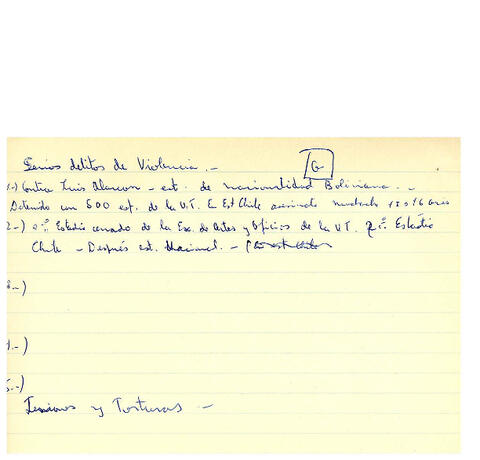 Serios delitos de Violencia.-
G
1.-) Contra Luis Alarcon - est. de nacionalidad Boliviana.-
Detenido con 500 est. de la U.T. En Est Chile asesinado muchacho 15 o 16 años
2.-) Estadio de la Esc. de Artes y Oficios de la U.T. Estadio
Chile - Después est. Nacional.-
3.-)
4.-)
5.-)
y Torturas -